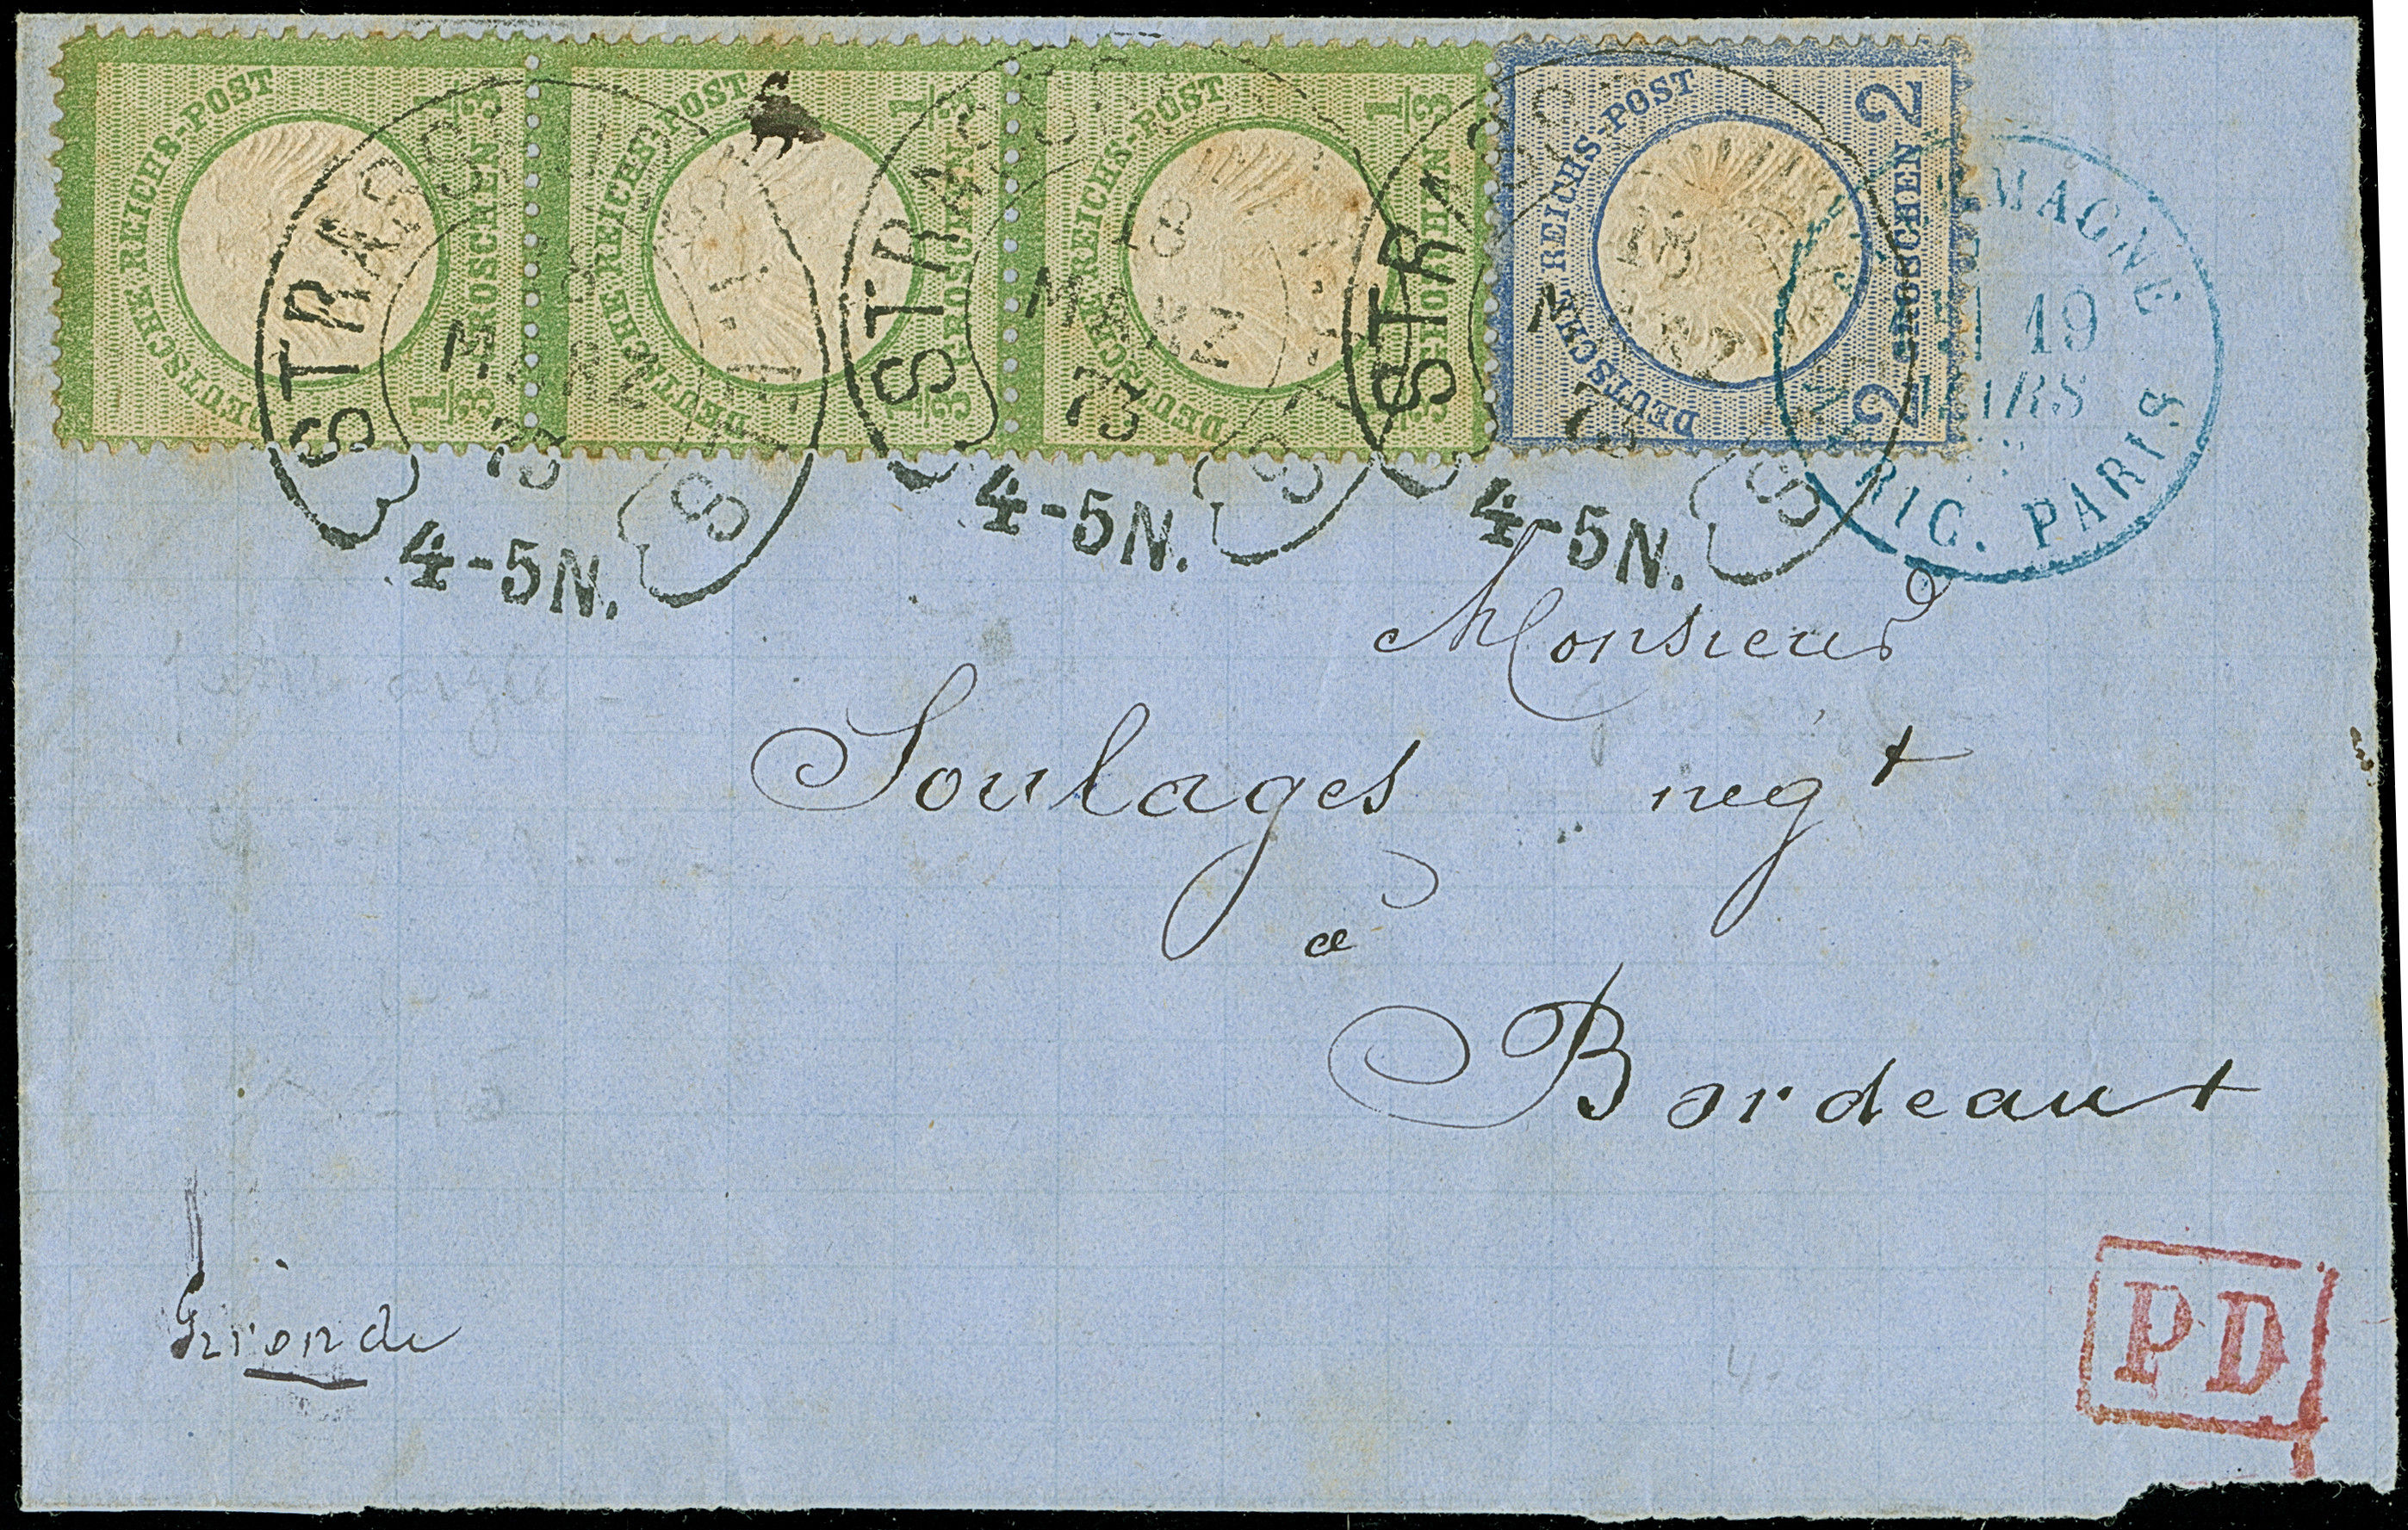 DEUTSCHE REICHS-POST 1/3 GROSCHEN 1/3
DEUTSCHE REICHS-POST 1/3 GROSCHEN 1/3
DEUTSCHE REICHS-POST 1/3 GROSCHEN 1/3
DEUTSCHE REICHS-POST 2 GROSCHEN 2
STRASSB
MÄRZ
73
4-5N.
STRASSB
18
MÄRZ
73
4-5N.
STRASSB
18
73
4-5N.
19
MARS
PARIS
Monsieur
Soulages negt
a
Bordeaux
Gironde
PD